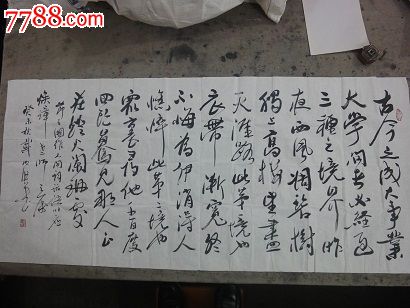 7788.com
古今之成大事業
大學問者必經過
三種之境界昨
夜西風凋碧樹
獨上高樓望盡
天涯路此第一境也
衣帶漸寬終
不悔為伊消得人
憔悴此第二境也
眾裏尋他千百度
回頭驀見那人正
在燈火闌珊處
癸巳秋戴